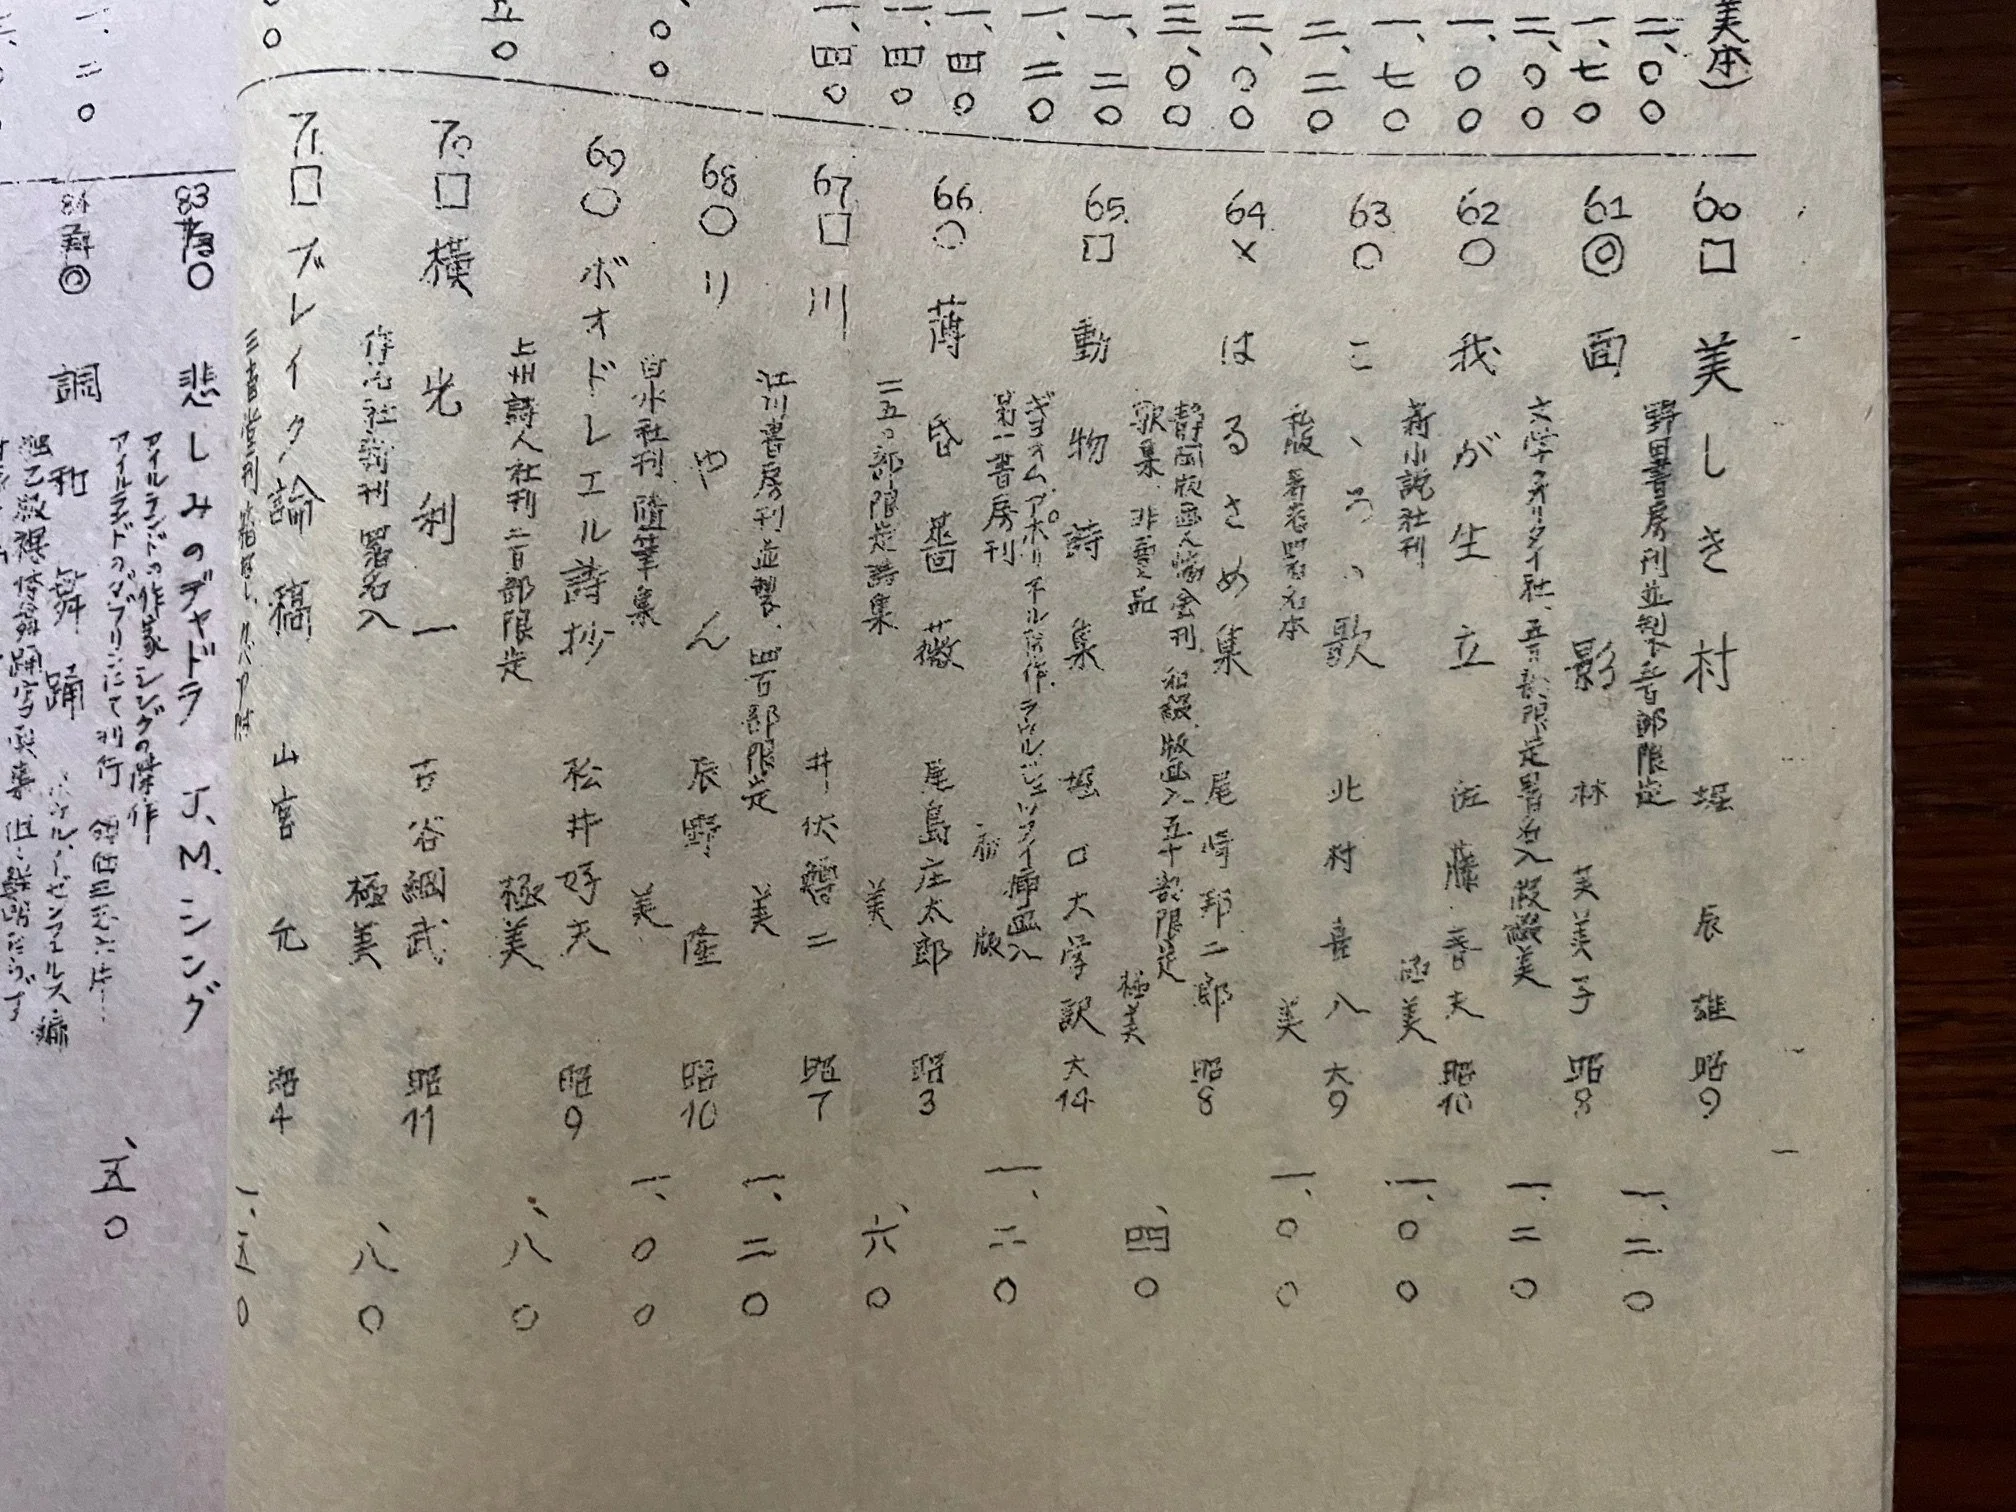 美本)
二、〇〇
一、七〇
二、〇〇
一、〇〇
一、七〇
二、二〇
二、〇〇
三、〇〇
一、二〇
一、二〇
一、四〇
一、四〇
一、四〇
、〇〇
五〇
〇
60 □ 美しき村 堀辰雄 昭9
野田書房刊並製 五百部限定 一、二〇
61 ◎ 面影 林芙美子 昭8
文学クオリタイ社、五百部限定署名入 仮綴美 一、二〇
62 ○ 我が生立 佐藤春夫 昭10
新小説社刊 極美 一、〇〇
63 ○ こゝろの歌 北村喜八 大9
私版 著者署名本 美 一、〇〇
64 × はるさめ集 尾崎邦二郎 昭8
静岡版画人協会刊 和綴 版画入 五十部限定
歌集 非売品 極美 、四〇
65. □ 動物詩集 堀口大学訳 大14
ギヨオム、アポリネル原作、ラウル、ジユツフイ挿画入
第一書房刊 初版 一、二〇
66. ○ 薄昏薔薇 尾島庄太郎 昭3
二五〇部限定詩集 美 、六〇
67 □ 川 井伏鱒二 昭7
江川書房刊並製、四百部限定 美 一、二〇
68 ○ りやん 辰野隆 昭10
白水社刊 随筆集 美 一、〇〇
69 ○ ボオドレエル詩抄 松井好夫 昭9
上州詩人社刊 二百部限定 極美 、八〇
70 □ 横光利一 古谷綱武 昭11
作品社刊 署名入 極美 、八〇
71. □ ブレイク論稿 山宮允 昭4
三省堂刊 一、五〇
一、二〇
83 ○ 悲しみのヂヤドラ J.M.シング
アイルランドの作家シングの傑作
アイルランドのダブリンにて刊行 、五〇
84 ◎ 調和舞踊